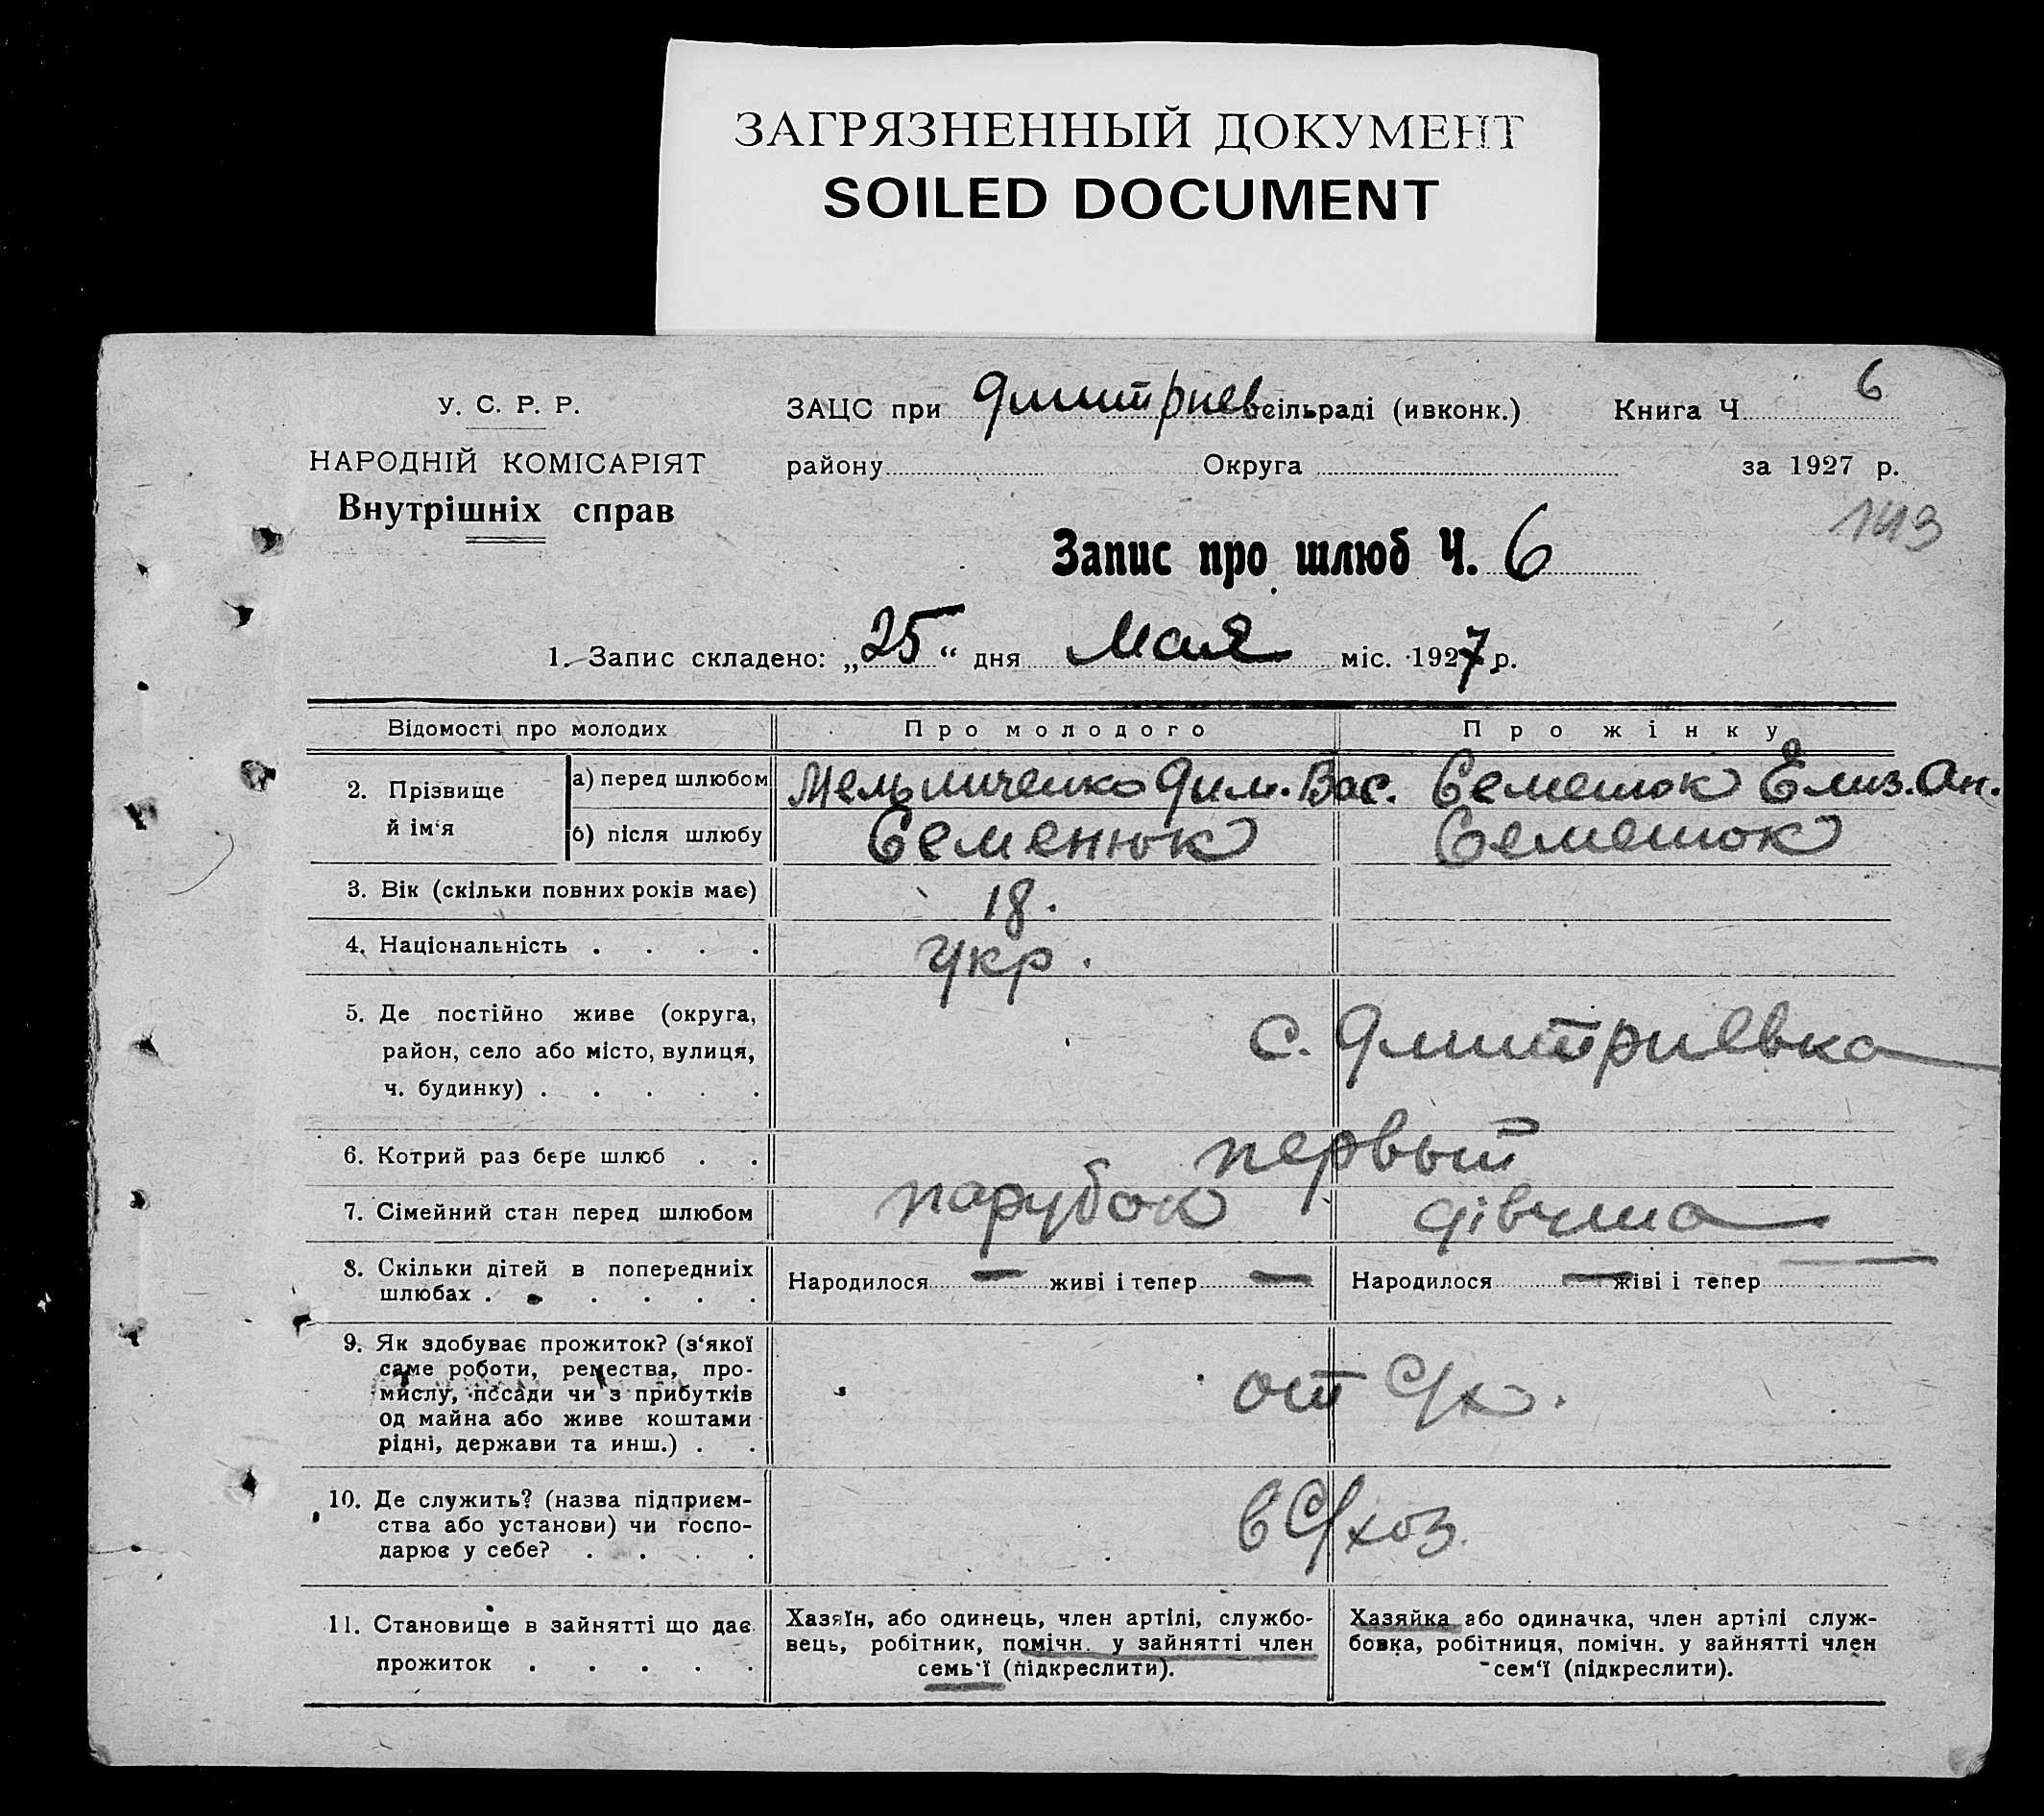 ЗАГРЯЗНЕННЫЙ ДОКУМЕНТ
SOILED DOCUMENT
У. С. Р. Р.
НАРОДНІЙ КОМІСАРІЯТ
Внутрішніх справ
ЗАЦС при Дмитриев сільраді (ивконк.) Книга Ч 6
району Округа за 1927 р.
143
Запис про шлюб Ч. 6
1. Запис складено: „25“ дня Мая міс. 1927 р.
Відомості про молодих Про молодого Про жінку
2. Прізвище й ім‘я а) перед шлюбом Мельниченко Дим. Вас. Семенюк Елиз. Ан.
б) після шлюбу Семенюк Семенюк
3. Вік (скільки повних років має) 18.
4. Національність . . . . Укр.
5. Де постійно живе (округа,
район, село або місто, вулиця,
ч. будинку) . . . . . с. Дмитриевка
6. Котрий раз бере шлюб . . первый
7. Сімейний стан перед шлюбом парубок дівчина
8. Скільки дітей в попередниіх
шлюбах . . . . . . Народилося — живі і тепер — Народилося — жіві і тепер —
9. Як здобуває прожиток? (з‘якої
саме роботи, ремества, про-
мислу, посади чи з прибутків
од майна або живе коштами
рідні, держави та инш.) . . от с/х.
10. Де служить? (назва підприєм-
ства або установи) чи госпо-
дарює у себе? . . . . в с/хоз.
11. Становище в зайнятті що дає
прожиток . . . . .
Хазяїн, або одинець, член артілі, службо-
вець, робітник, помічн. у зайнятті член
семь‘ї (підкреслити).
Хазяйка або одиначка, член артілі служ-
бовка, робітниця, помічн. у зайнятті член
сем‘ї (підкреслити).